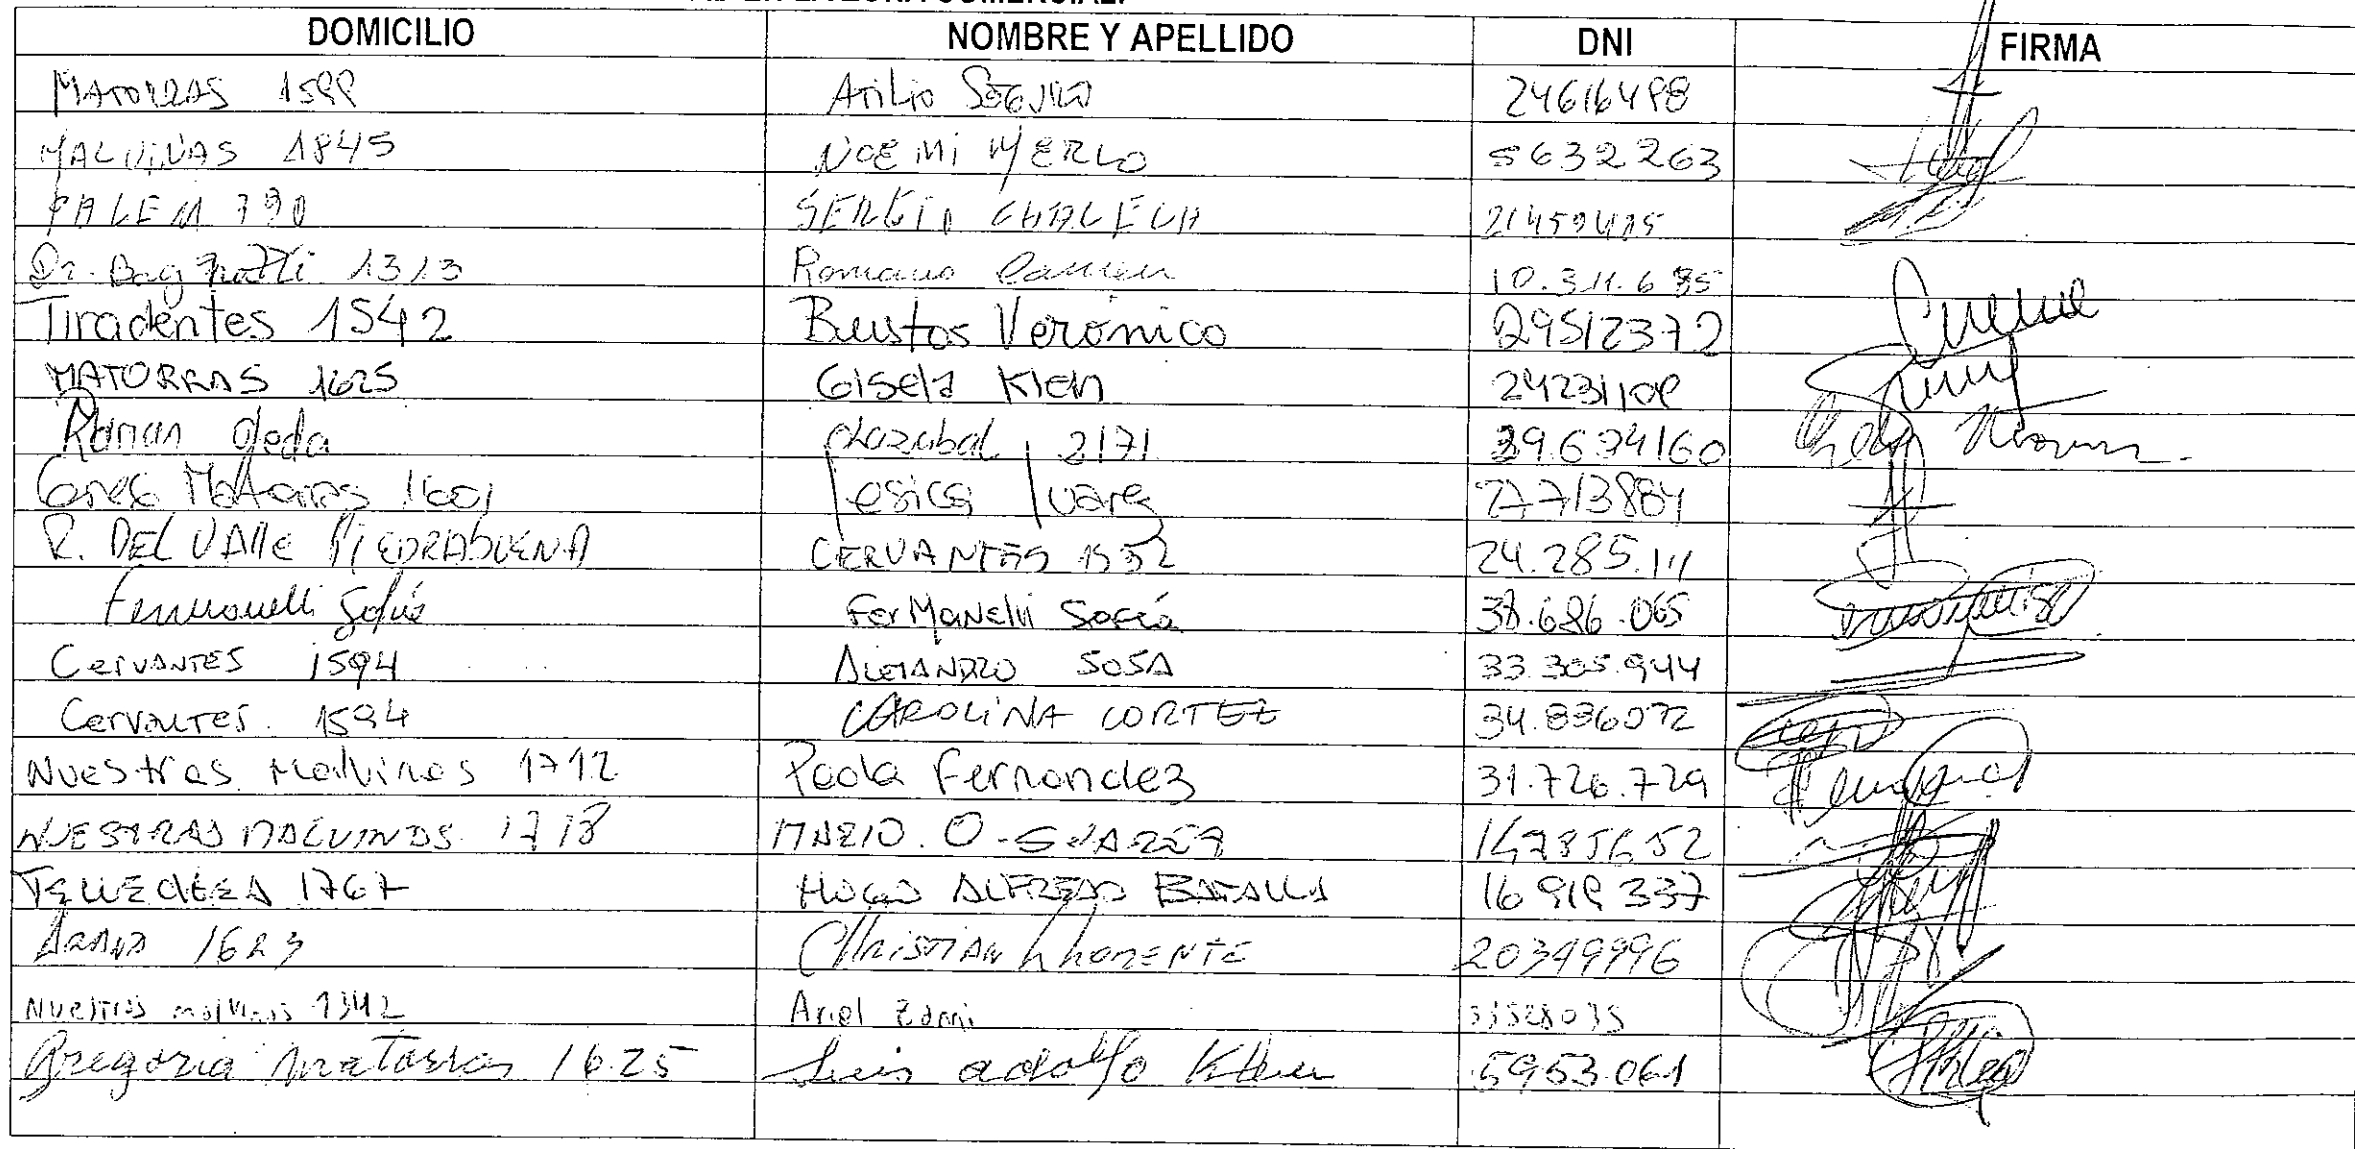 DOMICILIO NOMBRE Y APELLIDO DNI FIRMA
MATORRAS 1599 Atilio 24616498
MALVINAS 1845 NOEMI MERLO 5632263
PALEM 790 SERGIO 21459415
Dr. 1313 Romano Carmen 10.311.685
Tiradentes 1542 Bustos Verónica 29512372
MATORRAS 1625 Gisela Klein
Ramon Ojeda Olazabal 2171 39.674160
Matorras 1601 Jesica Juarez 27713884
R. DEL VALLE PIEDRABUENA CERVANTES 1532 24.285.111
Fermanelli Sofía Fermanelli Sofía 38.686.065
CERVANTES 1594 ALEJANDRO SOSA 33.305.944
Cervantes. 1594 CAROLINA CORTEZ 34.836072
Nuestras Malvinas 1712 Paola Fernandez 31.726.729
NUESTRAS MALVINAS 1718 MARIO. O
1767 HUGO ALFREDO BATALLA 16 919 337
ARANA 1623 CHRISTIAN LLORENTE 20349996
Nuestras malvinas 1342 Ariel 33528035
Gregoria Matorras 1625 Luis adolfo Klein 5953.061